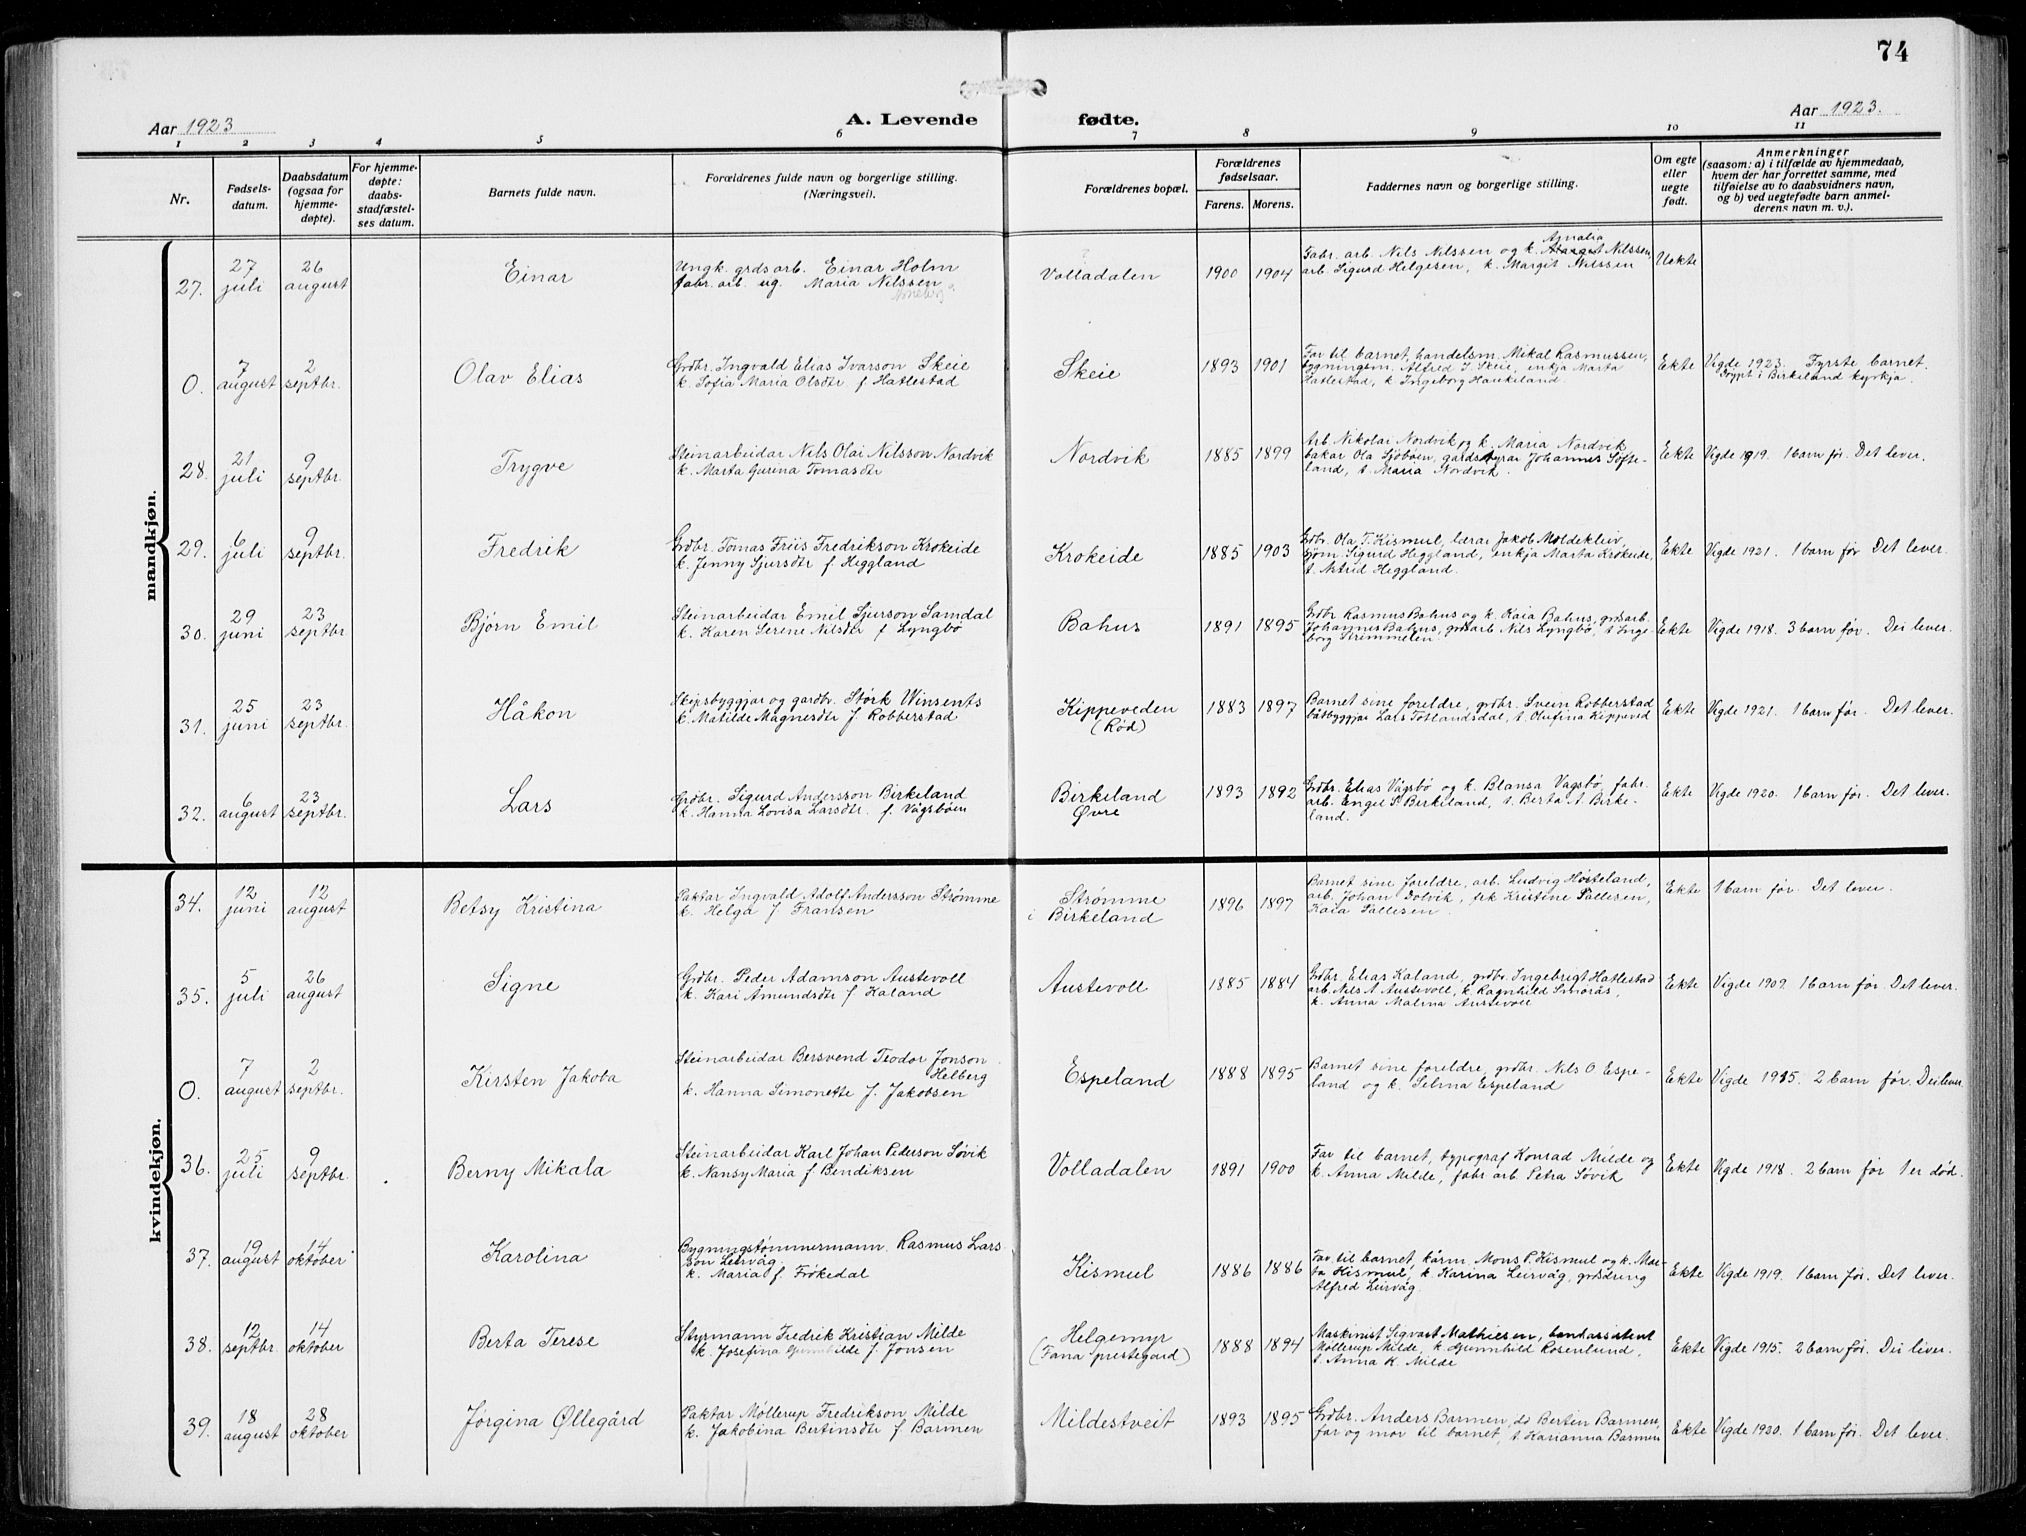 74
Aar 1923
A. Levende fødte.
Aar 1923.
1 2 3 4 5 6 7 8 9 10 11
Nr.
Fødsels-
datum.
Daabsdatum
(ogsaa for
hjemme-
døpte).
For hjemme-
døpte:
daabs-
stadfæstel-
ses datum.
Barnets fulde navn.
Forældrenes fulde navn og borgerlige stilling.
(Næringsvei).
Forældrenes bopæl.
Forældrenes
fødselsaar.
Farens. Morens.
Faddernes navn og borgerlige stilling.
Om egte
eller
uegte
født.
Anmerkninger
(saasom: a) i tilfælde av hjemmedaab,
hvem der har forrettet samme, med
tilføielse av to daabsvidners navn,
og b) ved uegtefødte barn anmel-
derens navn m. v.).
mandkjøn.
27.
27
juli
26
august
Einar
Ungk. grdsarb. Einar Holm
fabr. arb. ug. Maria Nilssen
Volladalen
1900 1904
Amalia
Fabr. arb. Nils Nilssen og k. Margit Nilssen,
arb. Sigurd Helgesen, k. Margit Nilssen
Uekte
0.
7
august
2
septbr.
Olav Elias
Grdbr. Ingvald Elias Ivarson Skeie
k. Sofia Maria Olsdtr f Hatlestad
Skeie
1893 1901
Far til barnet, handelsm. Mikal Rasmussen,
bygningsm. Alfred I. Skeie, enkja Marta
Hatlestad, k Ingeborg Haukeland.
Ekte
Vigde 1923. Fyrste barnet.
Døypt i Birkeland kyrkja.
28.
21
juli
9
septbr.
Trygve
Steinarbeidar Nils Olai Nilsson Nordvik
k. Marta Gurina Tomasdtr
Nordvik
1885 1899
Arb Nikolai Nordvik og k. Maria Nordvik
bakar Ola Sjøbøen, gardstyrar Johannes Softe-
land, t. Maria Nordvik.
Ekte
Vigde 1919. 1 barn før. Det lever.
29.
6
juli
9
septbr.
Fredrik
Grdbr. Tomas Friis Fredrikson Krokeide
k. Jenny Sjursdtr f Heggland
Krokeide
1885 1903
Grdbr. Ola T. Kismul, lærar Jakob Moldekleiv,
sjøm. Sigurd Heggland, enkja Marta Krokeide,
t. Astrid Heggland.
Ekte
Vigde 1921. 1 barn før Det lever.
30.
29
juni
23
septbr
Bjørn Emil
Steinarbeidar Emil Sjurson Samdal
k. Karen Serene Nilsdtr f Lyngbø
Bahus
1891 1895
Grdbr Rasmus Bahus og k. Kaia Bahus, grdsarb.
Johannes Bahus, grdsarb Nils Lyngbø, t Inge-
borg Skimmelen
Ekte
Vigde 1918. 3 barn før. Dei lever.
31.
25
juni
23
septbr.
Håkon
Skipsbyggjar og gardbr. Størk Winsents
k. Matilde Magnesdtr f. Robberstad
Kippeveden
(Rød)
1883 1897
Barnet sine foreldre, grdbr. Svein Robberstad
båtbyggjar Lars Totlandsdal, t. Olufina Kippeved
Ekte
Vigde 1921. 1 barn før. Det lever.
32.
6
august
23
septbr.
Lars
Grdbr. Sigurd Andersson Birkeland
k. Hanna Lovisa Larsdtr. f. Vågsbøen
Birkeland
Øvre
1893 1892
Grdbr. Elias Vågsbø og k. Blansa Vagsbø, fabr.
arb. Engel S. Birkeland, t. Berta A. Birke-
land.
Ekte
Vigde 1920. 1 barn før. Det lever.
kvindekjøn.
34.
12
juni
12
august
Betsy Kristina
Paktar Ingvald Adolf Andersson Strømme
k. Helga f. Fransen
Strømme
i Birkeland
1896 1897
Barnet sine foreldre, arb. Ludvig Høsteland,
arb. Johan Dolvik, frk Kristine Pallesen,
Kaia Pallesen.
Ekte
1 barn før. Det lever.
35.
5
juli
26
august
Signe
Grdbr. Peder Adamson Austevoll
k. Kari Åmundsdtr f Kaland
Austevoll
1885 1884
Grdbr. Elias Kaland, grdbr. Ingebrigt Hatlestad
arb Nils A Austevoll, k Ragnhild Smørås,
k. Anna Malina Austevoll
Ekte
Vigde 1909. 1 barn før. Det lever.
0.
7
august
2
septbr.
Kirsten Jakoba
Steinarbeidar Bersvend Teodor Jonson
Helberg
k. Hanna Simonette f. Jakobsen
Espeland
1888 1895
Barnet sine foreldre, grdbr. Nils O Espe-
land og k. Selma Espeland
Ekte
Vigde 1915. 2 barn før. Dei lever
36.
25
juli
9
septbr
Berny Mikala
Steinarbeidar Karl Johan Pederson Søvik
k. Nansy Maria f Bendiksen
Volladalen
1891 1900
Far til barnet, typograf Konrad Milde og
k. Anna Milde, fabr arb. Petra Søvik
Ekte
Vigde 1918. 2 barn før 1 er død.
37.
19
august
14
oktober
Karolina
Bygningstømmermann Rasmus Lars
son Leirvåg
k. Maria f. Frøkedal
Kismul
1886 1886
Far til barnet, kårm. Mons P. Kismul og k. Mar-
ta Kismul, k Karina Leirvåg, grdsdreng
Alfred Leirvåg.
Ekte
Vigde 1919. 1 barn før. Det lever.
38.
12
septbr.
14
oktober
Berta Terese
Styrmann Fredrik Kristian Milde
k. Josefina Gunnhilde f. Jonsen
Helgemyr
(Fana prestegard)
1888 1894
Maskinist Sigvart Mathiesen, landassistent
Møllerup Milde, k Gunnhild Rosenlund,
t. Anna K. Milde
Ekte
Vigde 1915. 2 barn før. Dei lever.
39.
18
august
28
oktober
Jørgina Øllegård
Paktar Møllerup Fredrikson Milde
k. Jakobina Bertinsdtr f Barmen
Mildestveit
1893 1895
Grdbr. Anders Barmen, do Bertin Barmen,
far og mor til barnet, t. Karianna Barmen
Ekte
Vigde 1920. 1 barn før. Det lever.